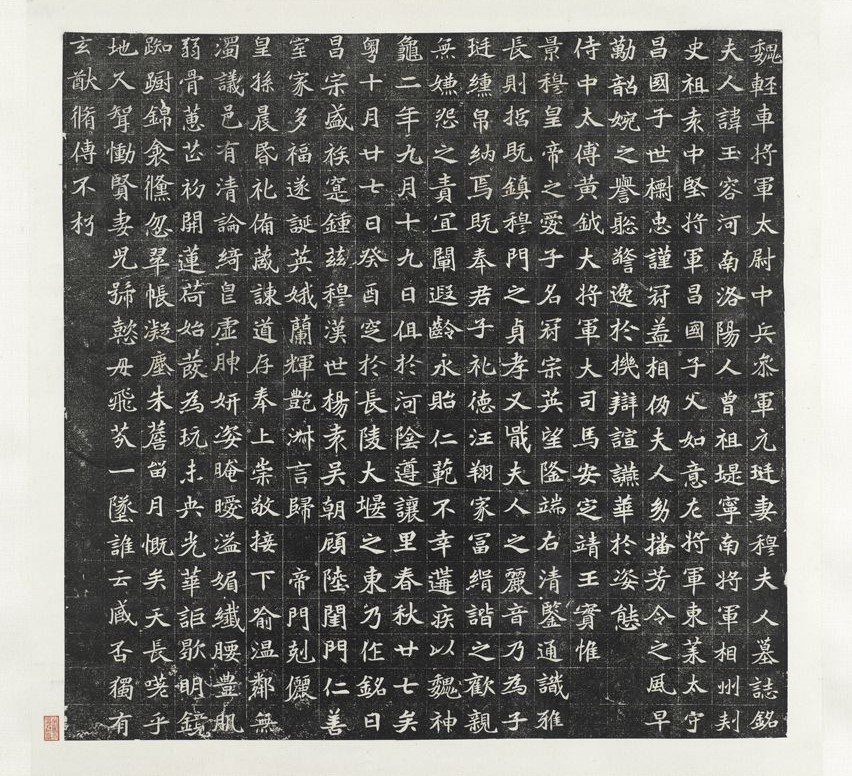 魏輕車將軍太尉中兵叅軍元珽妻穆夫人墓誌銘
夫人諱玉容河南洛陽人曾祖堤寧南將軍相州刾
史祖袁中堅將軍昌國子父如意左將軍東萊太守
昌國子世櫩忠謹冠盖相仍夫人幼播芳令之風早
勤韶婉之譽聡警逸於機辯諠讌華於姿態
侍中太傅黄鉞大將軍大司馬安定靖王實惟
景穆皇帝之愛子名冠宗英望隆端右清鑒通識雅
長則哲既鎮穆門之貞孝又戢夫人之麗音乃為子
珽纁帛納焉既奉君子礼徳汪翔家冨緝諧之歡親
無嫌怨之責冝闡遐齡永貽仁範不幸遘疾以魏神
龜二年九月十九日俎於河陰遵讓里春秋廿七矣
粵十月廿七日癸酉窆於長陵大堰之東乃作銘曰
昌宗盛袟寔鍾兹穆漢世楊袁吴朝顧陸閨門仁善
室家多福遂誕英娥蘭輝艶淋言歸 帝門剋儷
皇孫晨昏礼侑葴諫道存奉上崇敬接下俞温鄰無
濁議邑有清論綺皃虛妍姿晻曖溢媚纖腰豊肌
弱骨蕙芷初開蓮荷始蕟為玩未央光華詎歇明鏡
踟蹰錦衾儵忽翠帳凝塵朱簷留月慨矣天長嗟乎
地久駕慟賢妻兒蹄懿毋飛芬一墜誰云臧否獨有
玄猷脩傳不朽